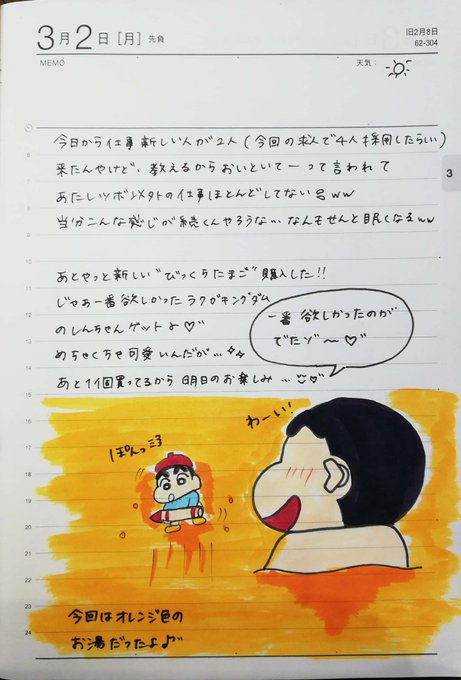 3月2日[月] 先負
旧2月8日
62-304
MEMO
天気:
今日から仕事新しい人が2人(今回の求人で4人採用したらしい)
来たんやけど、教えるからおいといてーって言われて
あたしツボシメ外の仕事ほとんどしてないww
当分こんな感じが続くんやろうな… なんもせんと眠くなるww
あとやっと新しい"びっくらたまご"購入した!!
じゃあ一番欲しかったラクガキングダム
のしんちゃんゲットよ♡
めちゃくちゃ可愛いんだが…
あと1個買ってるから明日のお楽しみ…
一番欲しかったのが
でたゾ〜♡
わーい!
ぽんっ
今回はオレンジ色の
お湯だったよ♪
3
6
8
9
10
11
12
13
14
15
16
17
18
19
20
21
22
23
24